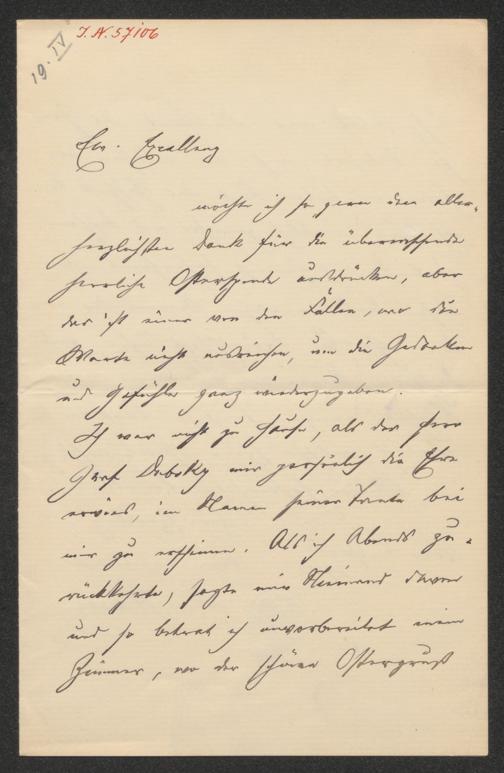 J.N. 57106
19. IV
Ew. Excellenz
möchte ich so gern den aller-
herzlichsten Dank für die überraschende
herrliche Osterspende ausdrücken, aber
das ist einer von den Fällen, wo die
Worte nicht ausreichen, um die Gedanken
und Gefühle ganz wiederzugeben.
Ich war nicht zu Hause, als der Herr
Graf Dubsky mir persönlich die Ehre
erwies, im Namen seiner Tante bei
mir zu erscheinen. Als ich Abends zu-
rückkehrte, sagte mir Niemand davon
und so betrat ich unvorbereitet mein
Zimmer, wo der schöne Ostergruß